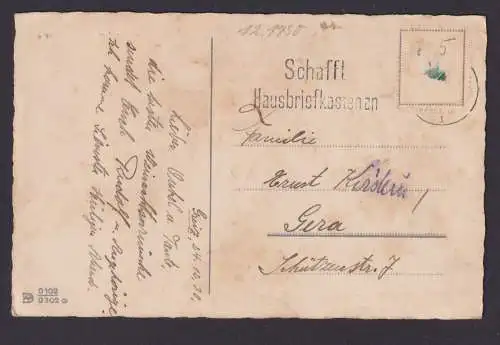 12.1930
5
Schafft
Hausbriefkasten an
Familie
Ernst
Gera
Schützenstr. 7
Greiz, 24.12.30.
Lieber Onkel u. Tante,
die besten Weihnachtswünsche
sendet Euch Rudolf u. Angehörige.
Ich komme Heiligen Abend.
0102
0302